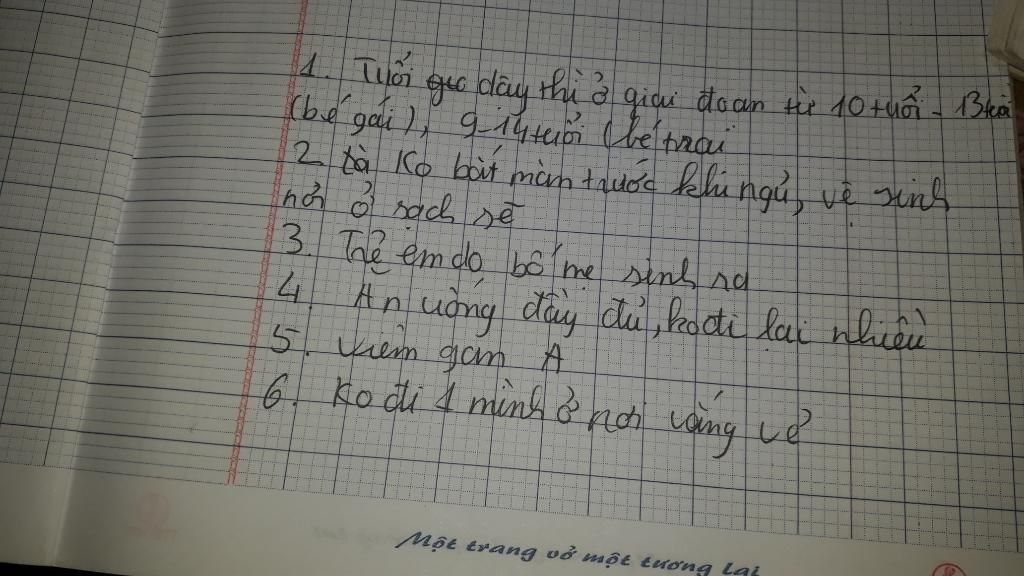 1. Tuổi dây thì ở giai đoan từ 10 tuổi - 13 tuổi
(bé gái), 9-14 tuổi (bé trai
2 Ko bât màn trước khi ngủ, vệ sinh
nơi ở sạch sẽ
3. Trẻ em do bố mẹ sinh ra
4. Ăn uống đầy đủ, ko đi lại nhiều
5. Viêm gan A
6. Ko đi 1 mình ở nơi vắng vẻ
Một trang vở một tương lai